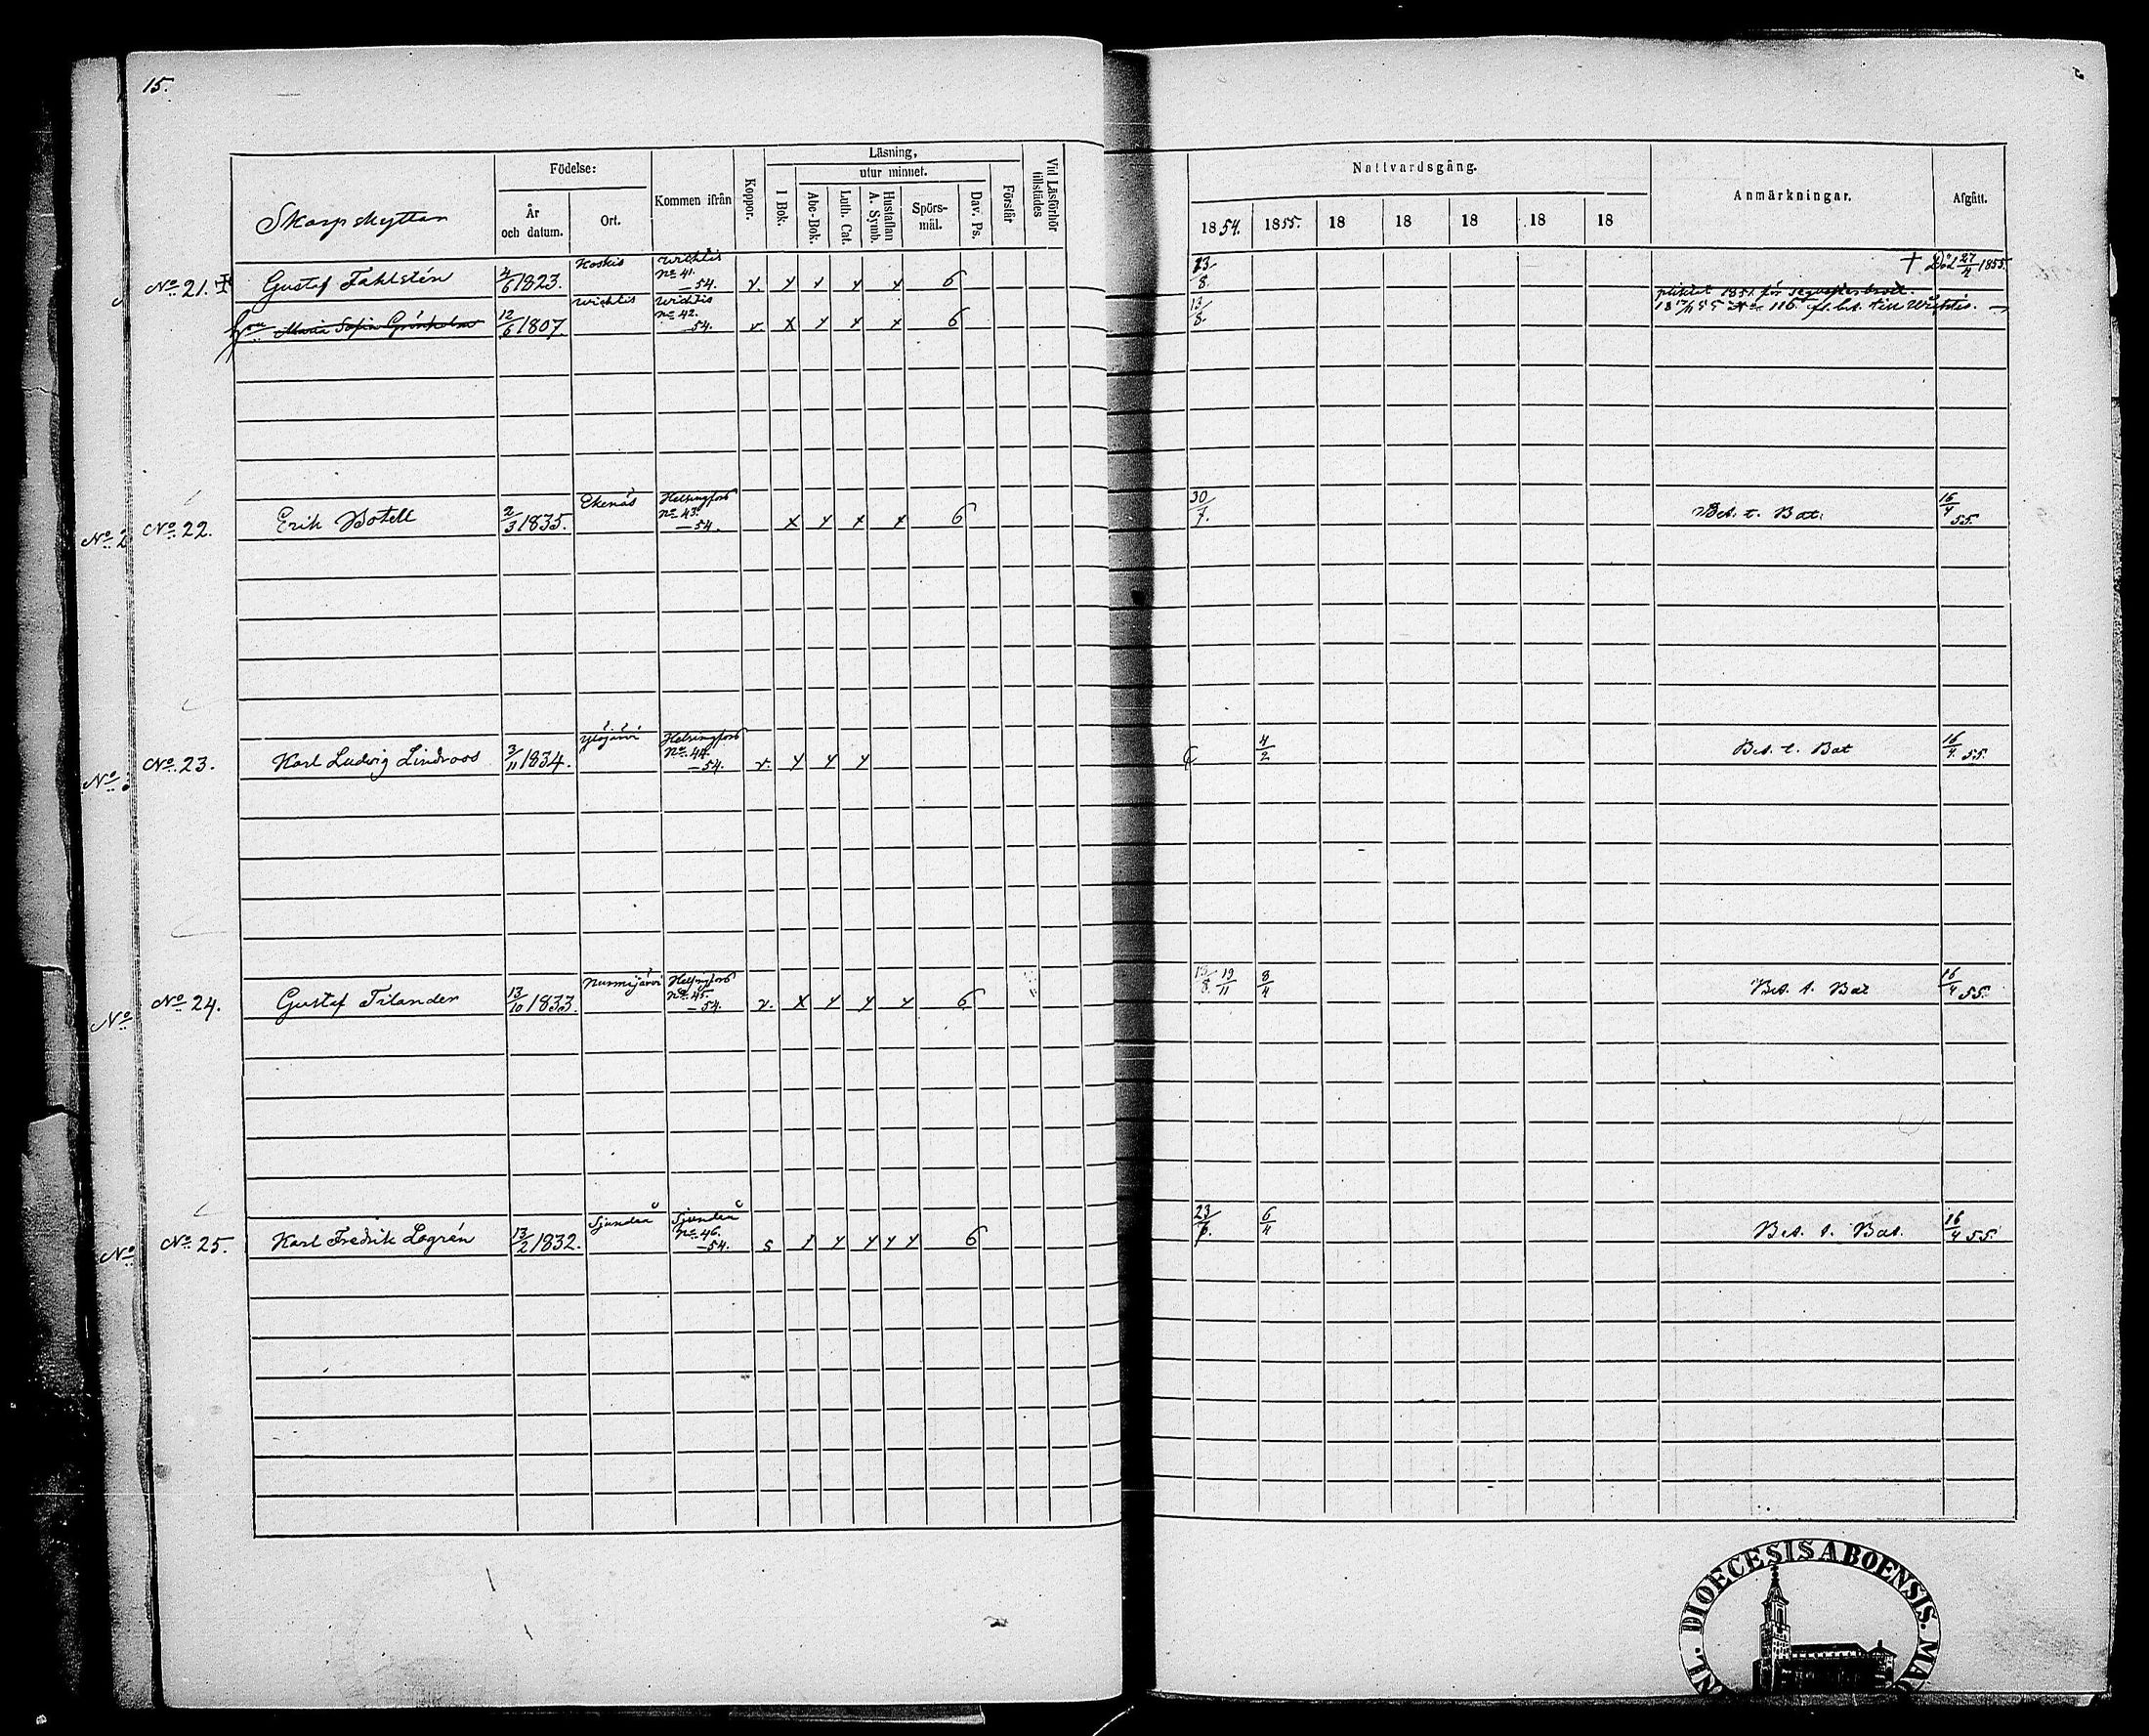 15.
Läsning,
Födelse:
utur minnet.
Skarpskytten
År och datum.
Ort.
Kommen ifrån
Koppor.
I Bok.
Abc-Bok.
Luth. Cat.
Hustaflan A. Symb.
Spörsmål.
Dav. Ps.
Förstår
Vid Läsförhör tillstädes
Nattvardsgång.
Anmärkningar.
Afgått.
1854. 1855. 18 18 18 18 18
No. 21. Gustaf Fahlstén 4/6 1823. Koskis Wichtis No. 41. –54. v. 6 13/8. † Död 27/4 1855.
Hu Maria Sofia Grönholm 12/6 1807. Wichtis Wichtis No. 42. –54. v 6 13/8
No. 22. Erik Botell 2/3 1835. Ekenäs Helsingfors No. 43. –54. 6 30/7. Bet. t. Bat. 16/4 55.
No. 23. Karl Ludvig Lindroos 3/11 1834. Ylöjärvi Helsingfors No. 44. –54. v. 4/2 Bet. t. Bat 16/4. 55.
No. 24. Gustaf Tilander 13/10 1833. Nurmijärvi Helsingfors No. 45. –54. v. 6 13/8 19/11 8/4 Bet. t. Bat 16/4 55.
No. 25. Karl Fredrik Lagrén 13/2 1832. Sjundeå Sjundeå No. 46. –54. s 6 23/7. 6/4 Bet. t. Bat. 16/4 55.
DIOECESIS ABOENSIS.